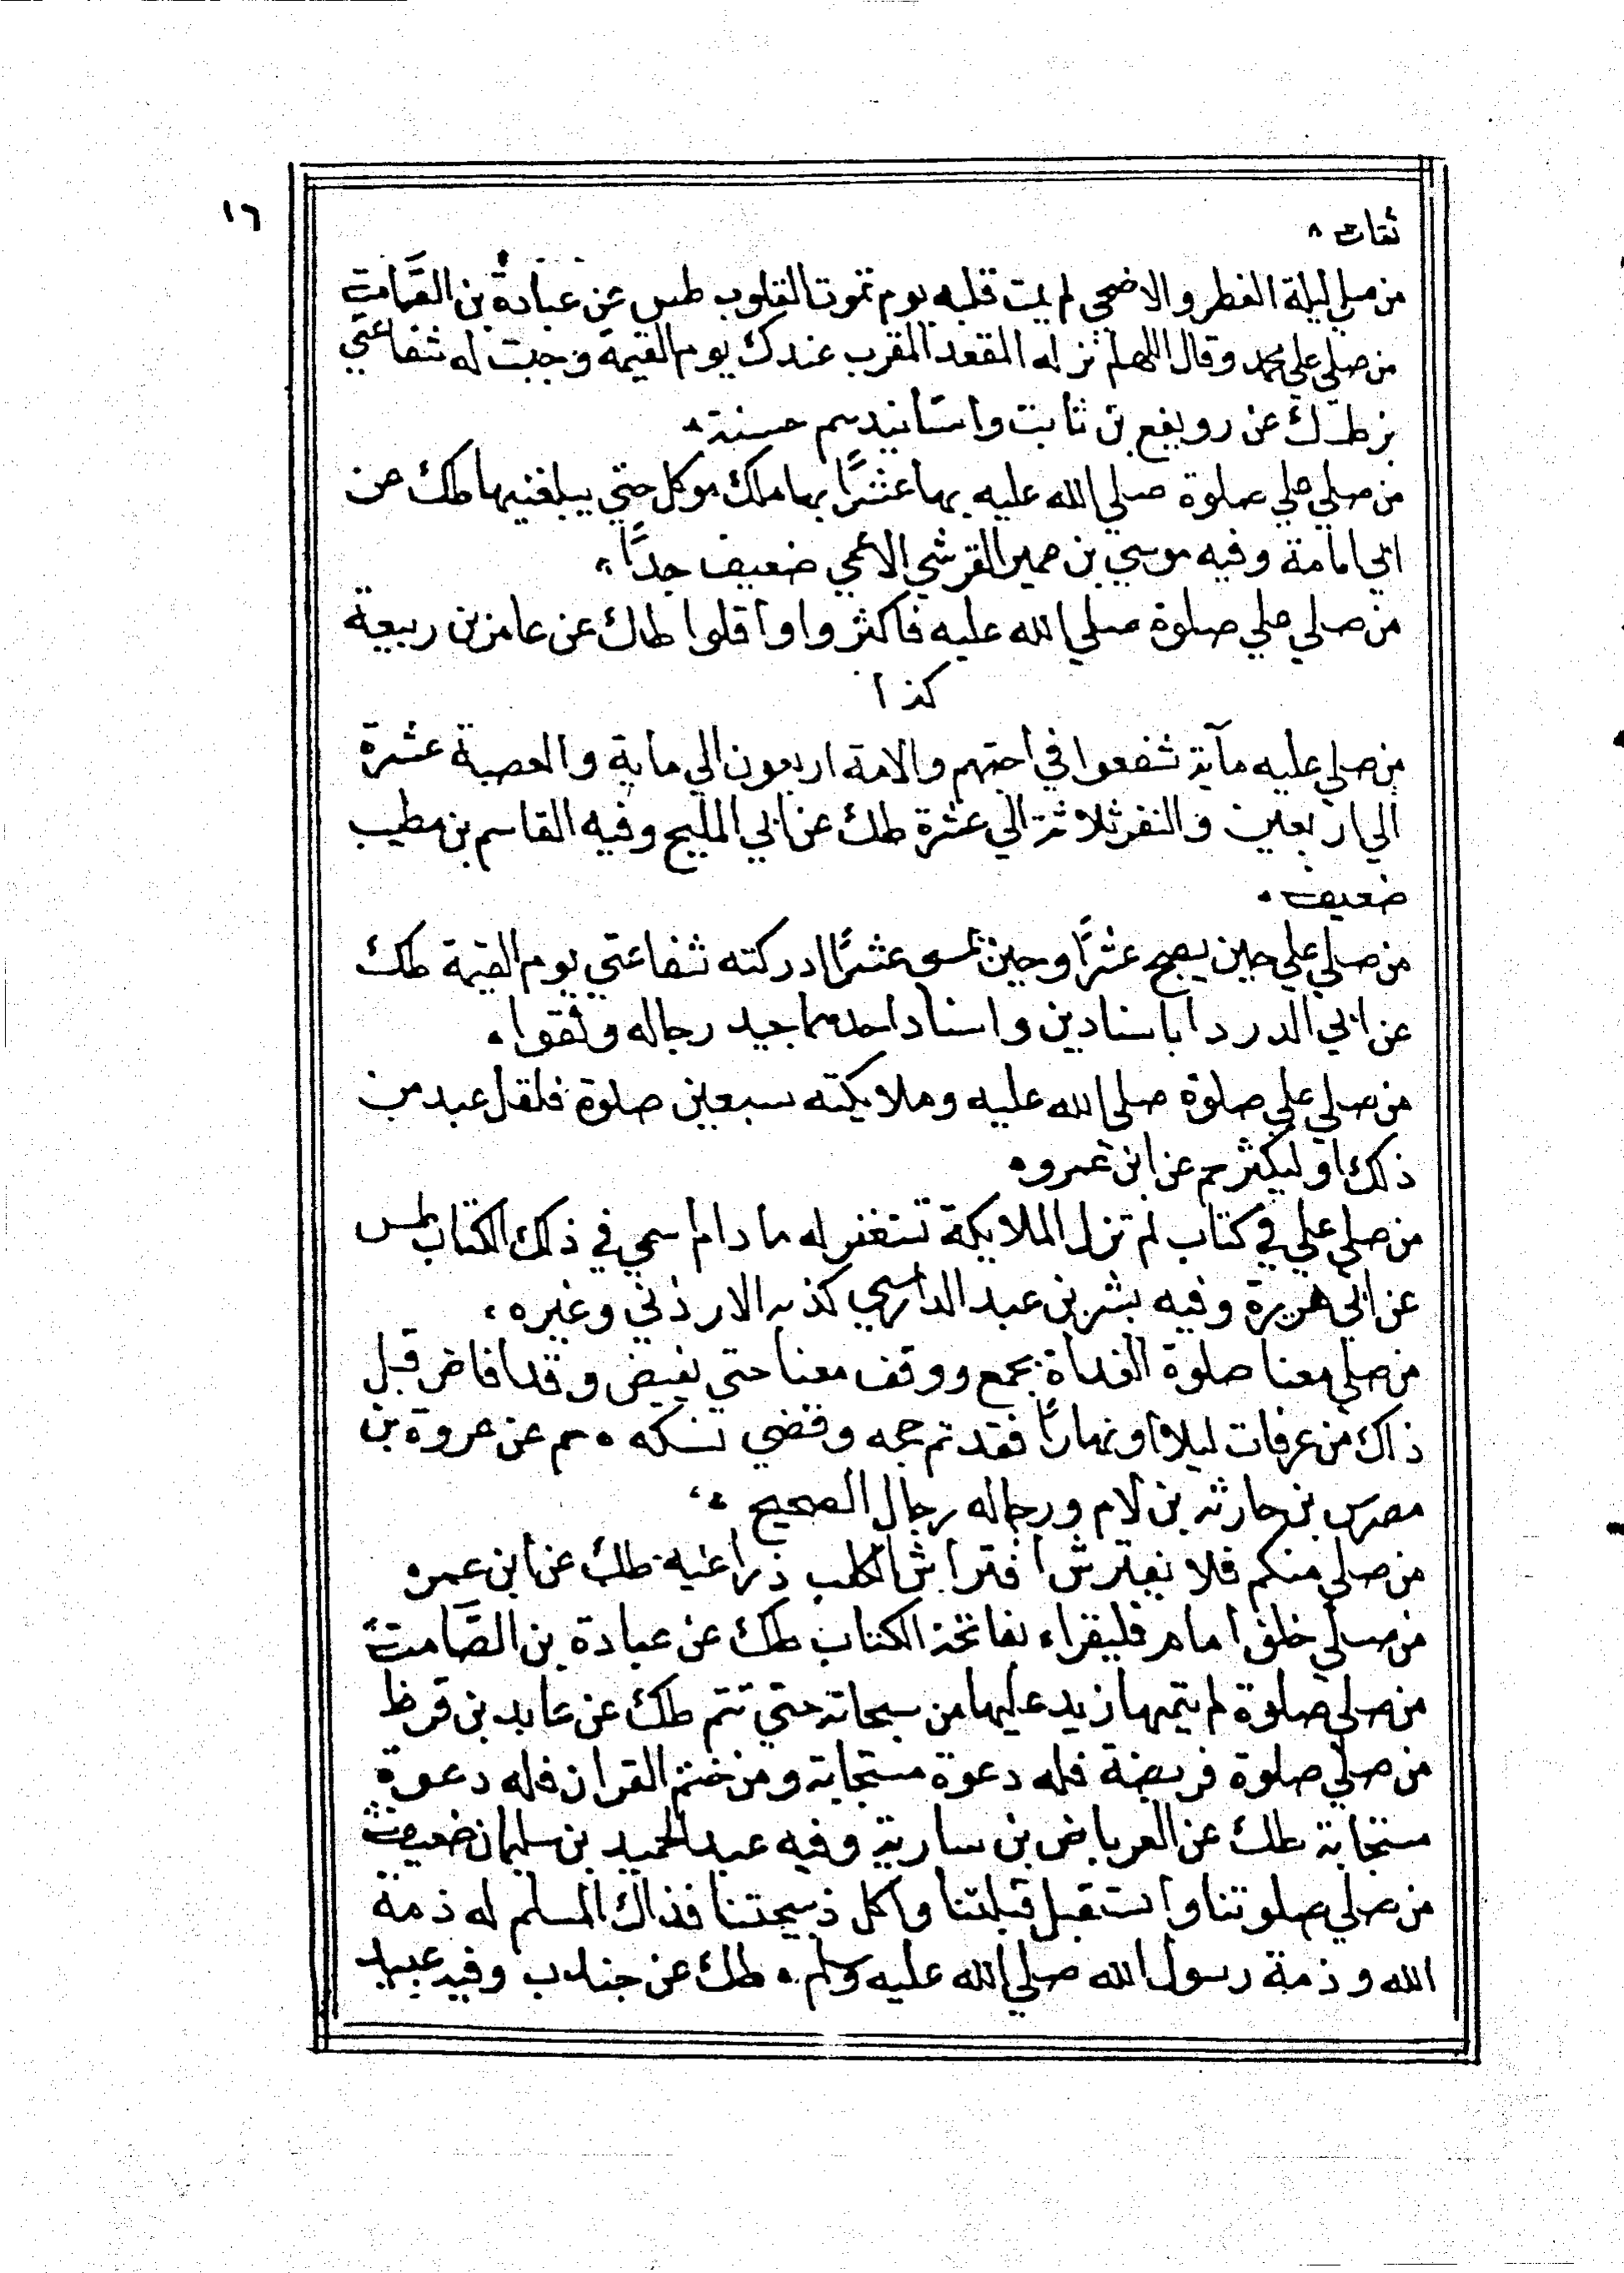 ١٦
ثقات
من صلي ليلة الفطر والاضحي لم يمت قلبه يوم تموت القلوب طس عن عبادة بن الصَّامت
من صلي علي محمد وقال اللهم نزله المقعد المقرب عندك يوم القيمة وجبت له شفاعتي
بز طك عن رويفع بن ثابت واسانيدهم حسنة
من صلي علي صلوة صلي الله عليه بها عشرًا بها ملك موكل حتي يبلغنيها طك عن
ابي امامة وفيه موسي بن عمير القرشي الاعمي ضعيف جدًّا
من صلي علي صلوة صلي الله عليه فاكثروا او اقلوا طك عن عامر بن ربيعة
كذا
من صلي عليه مآية شفعوا في اخيهم والامة اربعون الي ماية والعصبة عشرة
الي اربعين والنفر ثلاثة الي عشرة طك عن ابي المليح وفيه القاسم بن مطيب
ضعيف
من صلي علي حين يصبح عشرًا وحين يمسي عشرًا ادركته شفاعتي يوم القيمة طك
عن ابي الدردا باسنادين واسناد احدهما جيد رجاله وثقوا
من صلي علي صلوة صلي الله عليه وملايكته سبعين صلوة فلقل عبد من
ذلك او ليكثر حم عن ابن عمرو
من صلي علي في كتاب لم تزل الملايكة تستغفر له ما دام اسمي في ذلك الكتاب طس
عن ابي هريرة وفيه بشر بن عبد الدارسي كذبه الارذني وغيره
من صلي معنا صلوة الغداة بجمع ووقف معنا حتي نفيض وقد افاض قبل
ذاك من عرفات ليلا او نهارًا فقد تم حجه وقضي نسكه حم عن عروة بن
مصرس بن حارثة بن لام ورجاله رجال الصحيح
من صلي منكم فلا يفترش افتراش الكلب ذراعيه طك عن ابن عمر
من صلي خلف امام فليقراء بفاتحة الكتاب طك عن عبادة بن الصَّامت
من صلي صلوة لم يتمها زيد عليها من سبحاته حتي تتم طك عن عايد بن قرظ
من صلي صلوة فريضة فله دعوة مستجابة ومن ختم القران فله دعوة
مستجابة طك عن العرباض بن سارية وفيه عبد الحميد بن سليمان ضعيف
من صلي صلوتنا واستقبل قبلتنا واكل ذبيحتنا فذاك المسلم له ذمة
الله وذمة رسول الله صلي الله عليه وسلم طك عن جندب وفيه عبيد